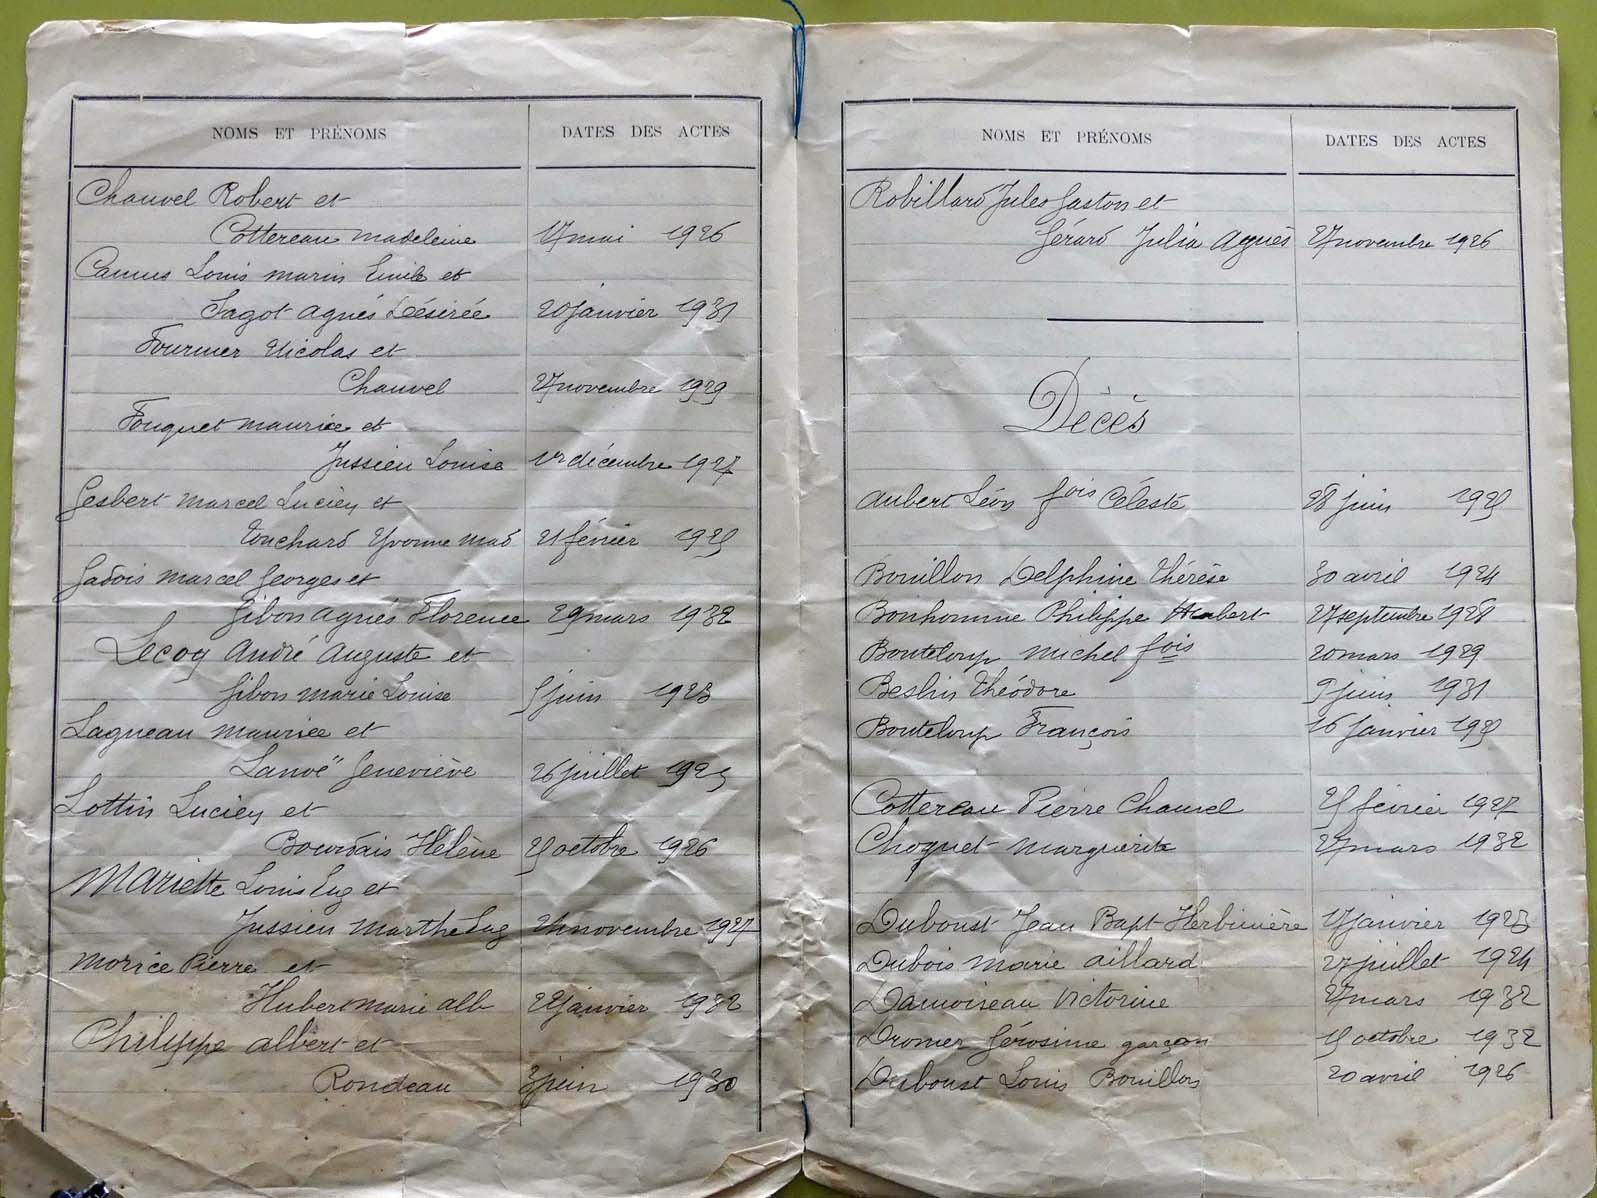 NOMS ET PRÉNOMS
DATES DES ACTES
Chauvel Robert et
Cottereau Madeleine 17 mai 1926
Camus Louis Marin Emile et
Fagot Agnès Désirée 20 janvier 1931
Fournier Nicolas et
Chauvel 27 novembre 1929
Fouquet Maurice et
Jussieu Louise décembre 1927
Gesbert Marcel Lucien et
Touchard Yvonne Mad 21 février 1925
Gadois Marcel Georges et
Gibon Agnés Florence 29 mars 1932
Lecoq André Auguste et
Gibon Marie Louise 5 juin 1923
Lagneau Maurice et
Lanoë Geneviève 26 juillet 1925
Lottin Lucien et
Bourdais Hélène 25 octobre 1926
Mariette Louis Eug et
Jussieu Marthe Eug 24 novembre 1927
Morice Pierre et
Hubert Marie Alb janvier 1932
Philippe Albert et
Rondeau 3 juin 1930
NOMS ET PRÉNOMS
DATES DES ACTES
Robillard Jules Gaston et
Gérard Julia Agnès 27 novembre 1926
Décès
Aubert Léon fois Céleste 28 juin 1925
Bouillon Delphine Thérèse 30 avril 1924
Bonhomme Philippe Humbert 27 septembre 1928
Bouteloup Michel fois 20 mars 1929
Beslin Théodore 9 juin 1931
Bouteloup François 16 janvier 1925
Cottereau Pierre Chauvel 25 février 1927
Choquet Marguerite 27 mars 1932
Duboust Jean Bapt Herbinière 17 janvier 1923
Dubois Marie Aillard 27 juillet 1924
Damoiseau Victorine 27 mars 1932
Dromer Gérosime garçon 15 octobre 1932
Duboust Louis Bouillon 20 avril 1926